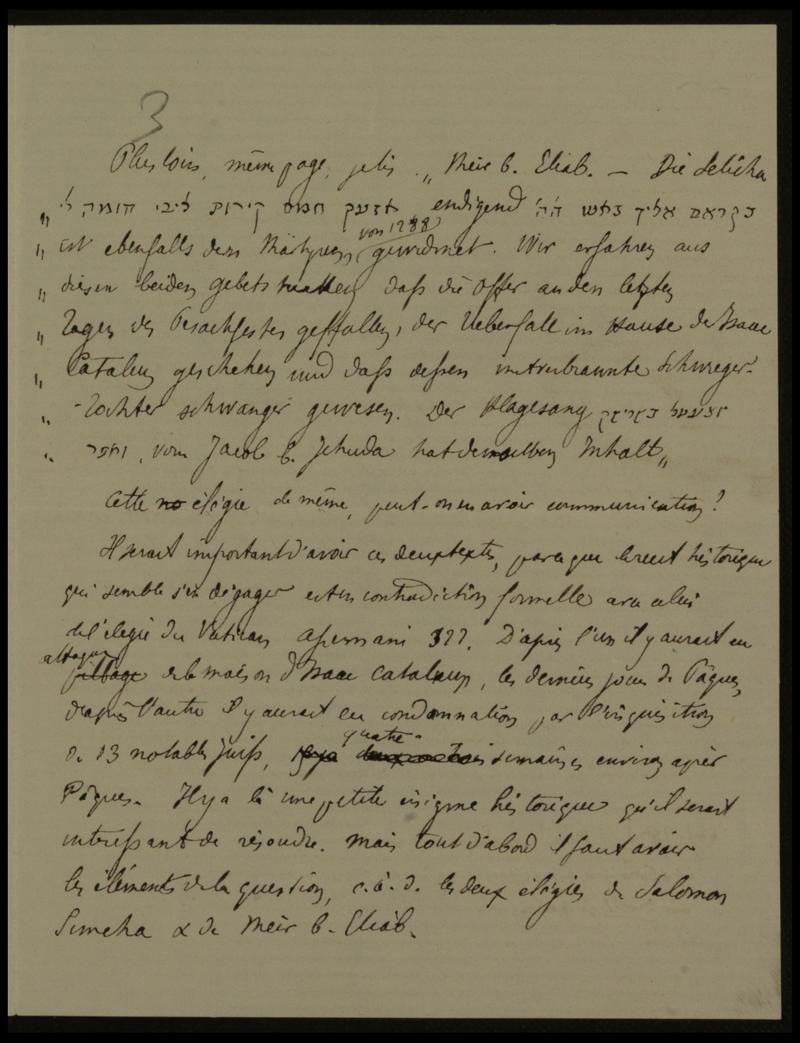 3
Plus loin, même page, je lis „ Meir b. Eliab. — Die Selicha
„ בקראם אליך באש הי' endigend קירות ליבי חומה לי
„ ist ebenfalls den Märtyrern von 1288 gewidmet. Wir erfahren aus
„ diesen beiden gebetstücken daß die Opfer an den letzten
„ Tagen des Pesachfestes gefallen, der Ueberfall im Hause de Isaac
„ Catalan geschehen und daß dessen mitverbrannte Schwieger-
„ -tochter schwanger gewesen. Der Klagesang
„ , von Jacob b. Jehuda hat denselben Inhalt „
Cette élégie de même, peut-on en avoir communication?
Il serait important d'avoir ces deux textes, parce que le récit historique
qui semble s'en dégager est en contradiction formelle avec celui
de l'élégie du Vatican Assemani 322. D'après l'un il y aurait eu
attaque de la maison d'Isaac Catalan, les derniers jours de Pâques,
d'après l'autre il y aurait eu condamnation par l'inquisition
de 13 notables juifs, quatre semaines environ après
Pâques. Il y a là une petite énigme historique qu'il serait
intéressant de résoudre. Mais tout d'abord il faut avoir
les éléments de la question, c. à. d. les deux élégies de Salomon
Simcha & de Meir b. Eliab.